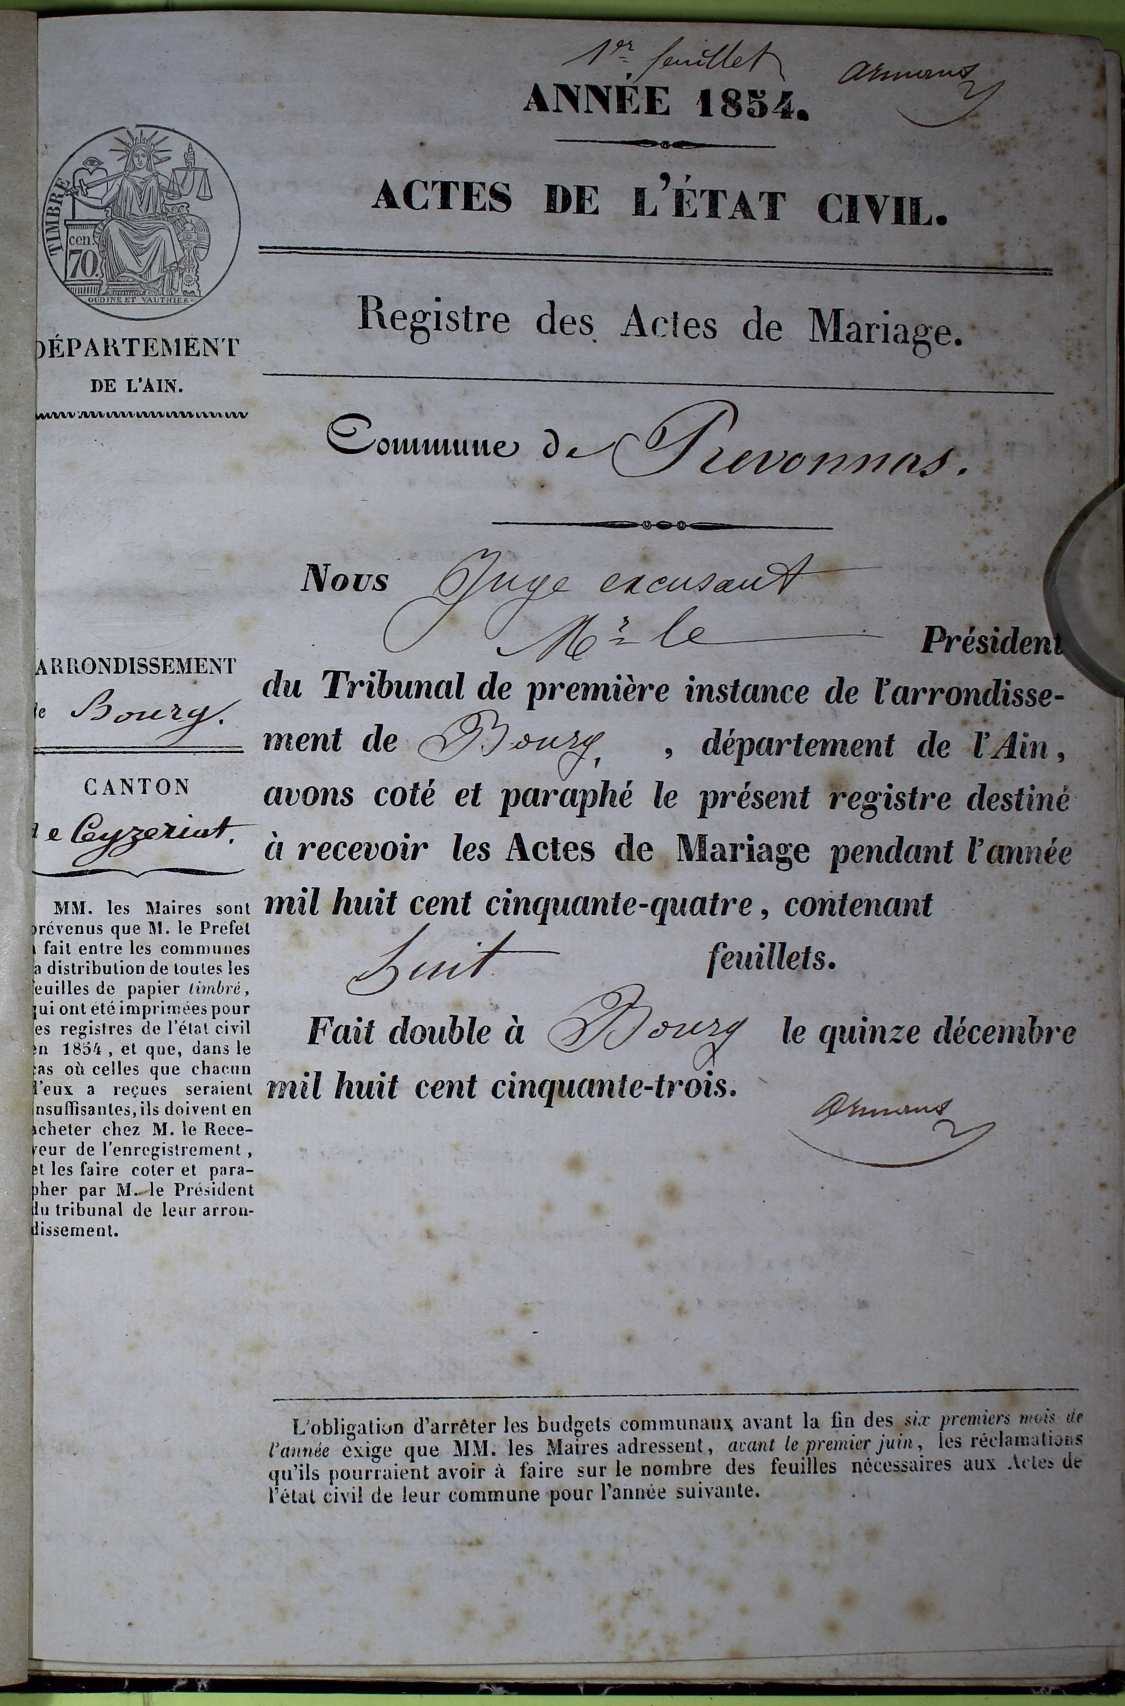 1er feuillet
ANNÉE 1854.
ACTES DE L'ÉTAT CIVIL.
TIMBRE
cen.
70.
OUDINE ET VAUTHIER
Registre des Actes de Mariage.
DÉPARTEMENT
DE L'AIN.
Commune de Revonnas.
Nous Juge excusant
Mr le Président
du Tribunal de première instance de l'arrondisse-
ment de Bourg, , département de l'Ain,
avons coté et paraphé le présent registre destiné
à recevoir les Actes de Mariage pendant l'année
mil huit cent cinquante-quatre, contenant
huit feuillets.
Fait double à Bourg le quinze décembre
mil huit cent cinquante-trois.
ARRONDISSEMENT
de Bourg.
CANTON
de Ceyzeriat.
MM. les Maires sont
prévenus que M. le Préfet
a fait entre les communes
la distribution de toutes les
feuilles de papier timbré,
qui ont été imprimées pour
les registres de l'état civil
en 1854, et que, dans le
cas où celles que chacun
d'eux a reçues seraient
insuffisantes, ils doivent en
acheter chez M. le Rece-
veur de l'enregistrement,
et les faire coter et para-
pher par M. le Président
du tribunal de leur arron-
dissement.
L'obligation d'arrêter les budgets communaux avant la fin des six premiers mois de
l'année exige que MM. les Maires adressent, avant le premier juin, les réclamations
qu'ils pourraient avoir à faire sur le nombre des feuilles nécessaires aux Actes de
l'état civil de leur commune pour l'année suivante.